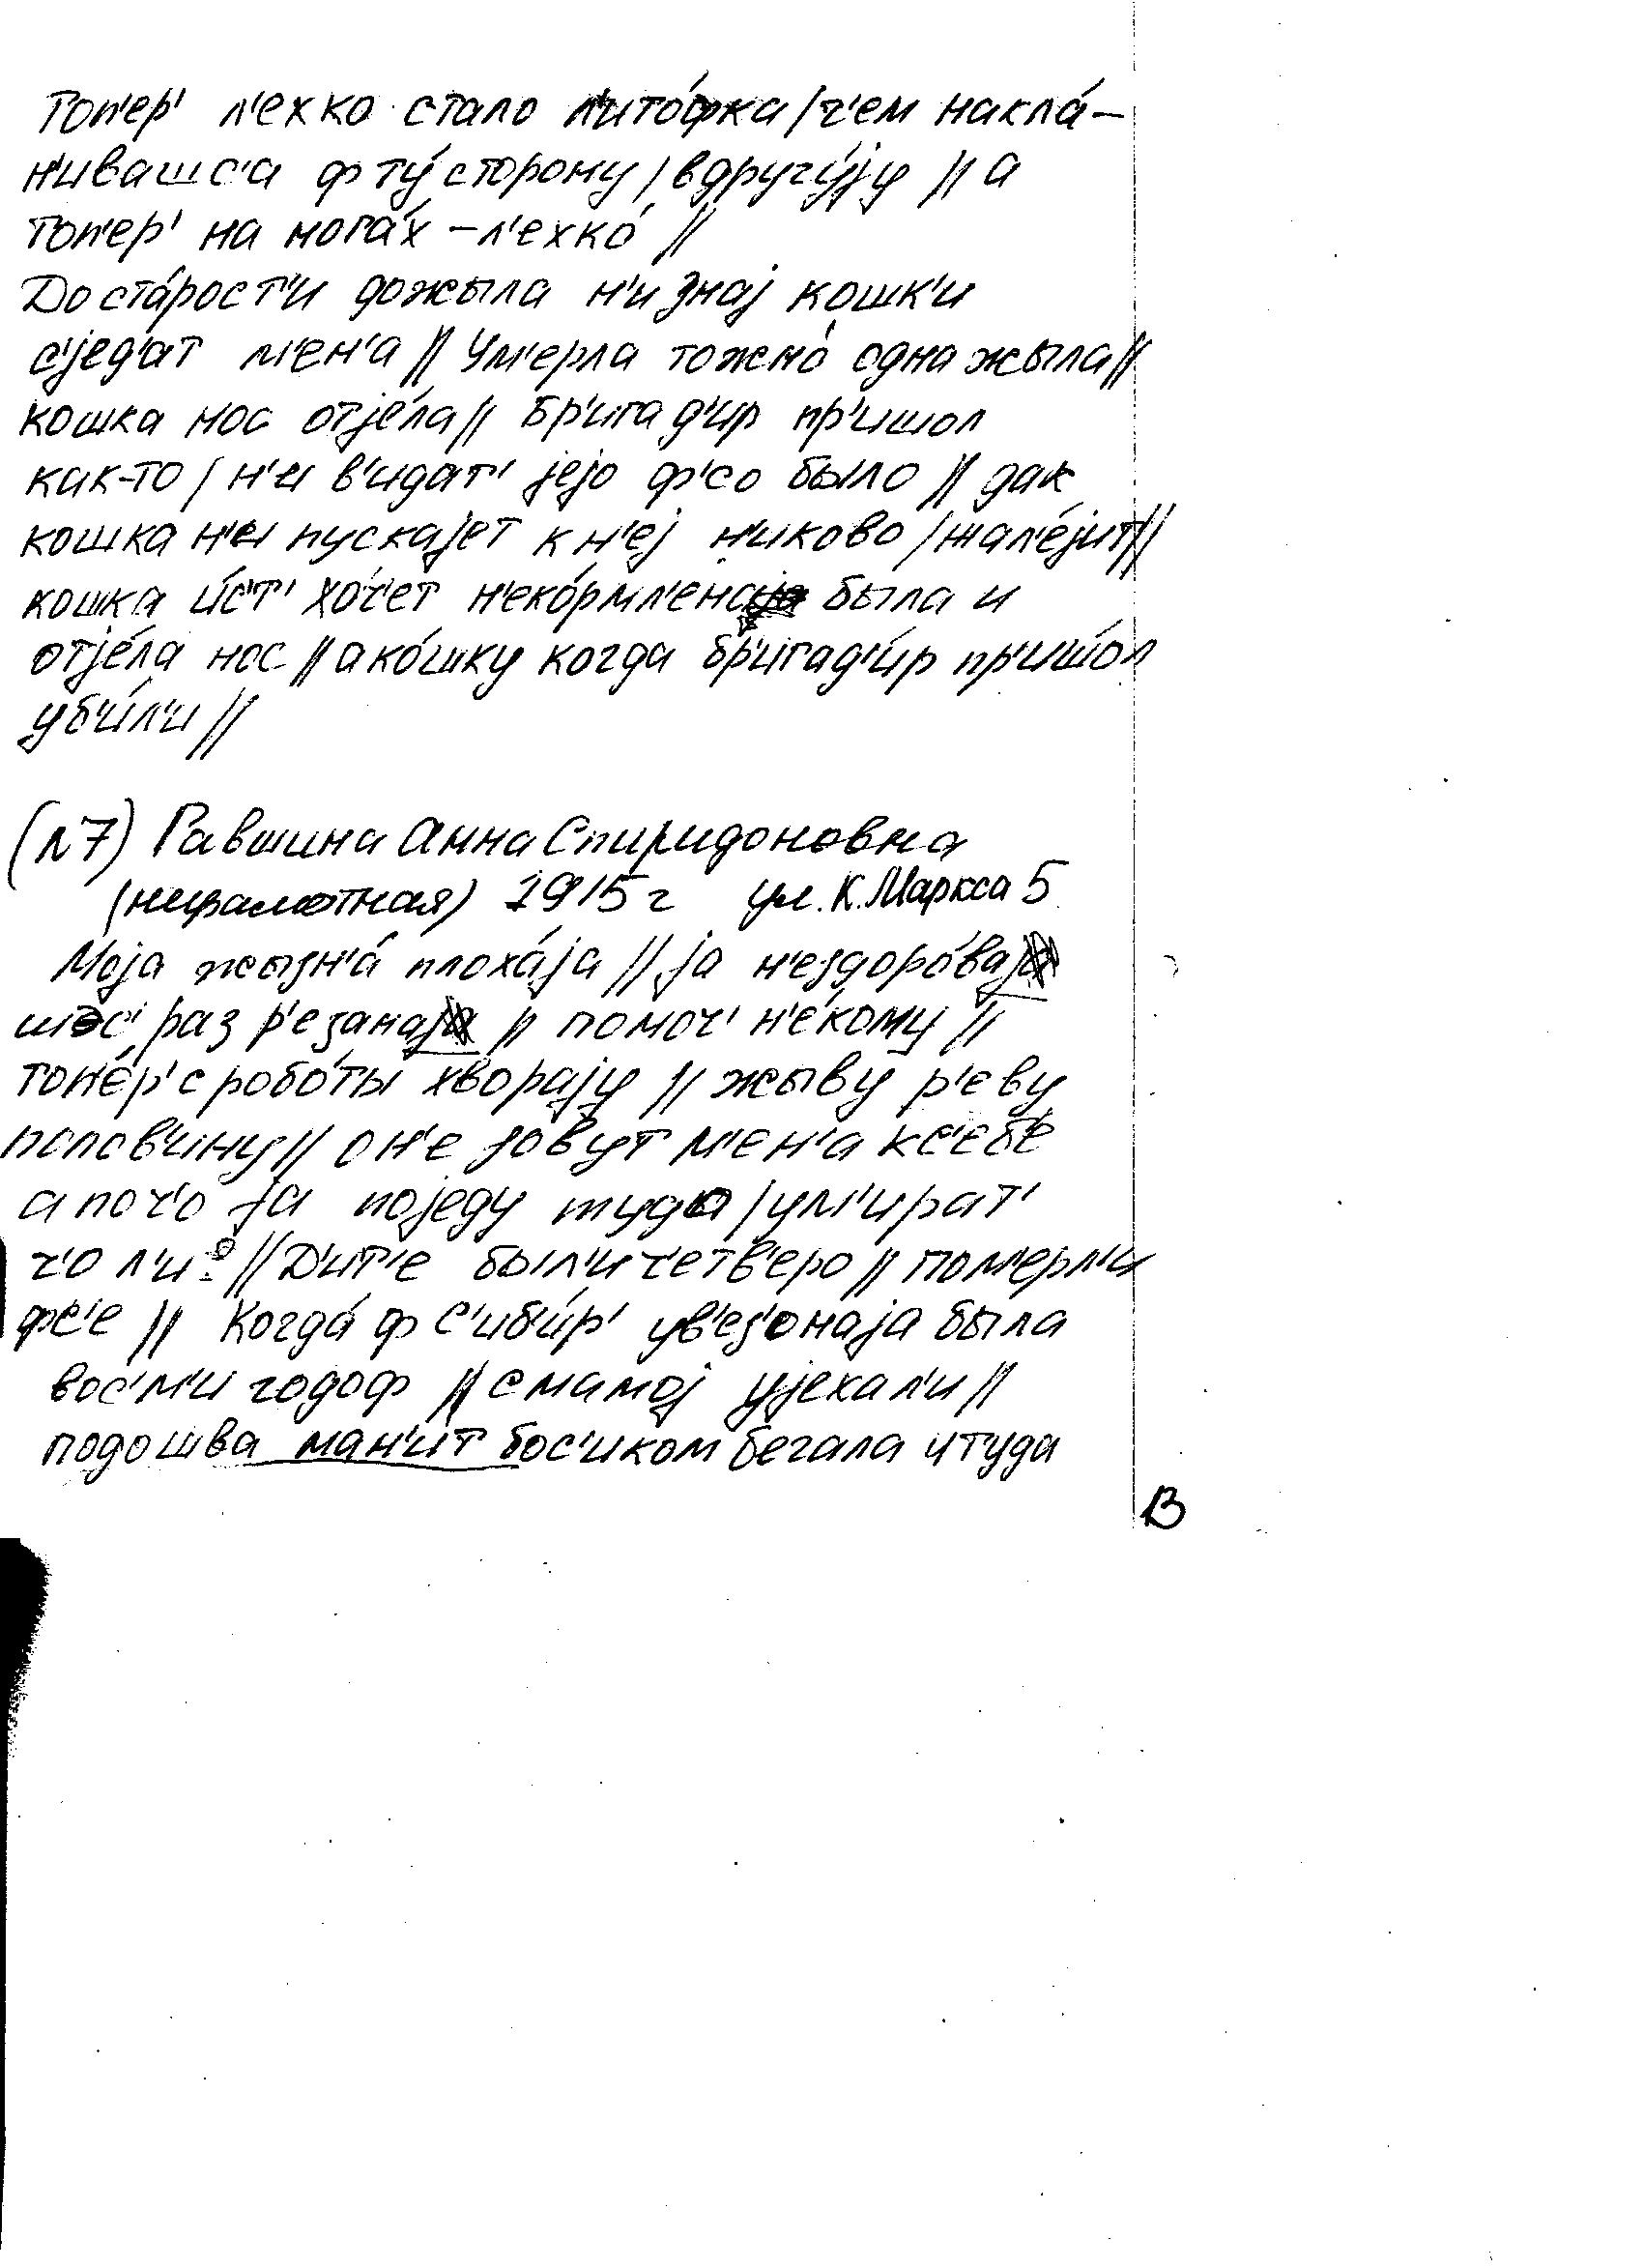 топ'ер' л'ехко стало л'ито́фка / ч'ем накла́-
н'ивашс'а ф ту́ сторону / в другу́jу // а
топ'ер' на нога́х – л'ехко́ //
До ста́рост'и дожыла н'и знаj кошк'и
с'jед'ат м'ен'а // Ум'ерла тожно́ одна жыла //
кошка нос отjе́ла // бр'игад'ир пр'ишол
как-то / н'и в'идат' jеjо ф'со было // дак
кошка н'и пускаjет к н'еj н'иково / жал'е́jит //
кошка и́с'т' хо́ч'ет н'еко́рмл'ена была и
отjе́ла нос // а ко́шку когда бр'игад'и́р пр'ишо́л
уб'и́л'и //
(л7) Гавшина Анна Спиридоновна
(неграмотная) 1915 г ул. К. Маркса 5
Моjа жызн'а́ плоха́jа // jа н'ездоро́ваj
шэс' раз р'езанаj // помоч' н'е́кому //
топ'е́р' с робо́ты хвораjу // жыву р'еву
половину // он'е зовут м'ен'а к с'еб'е
а поч'о jа поjеду туда / ум'ират'
ч'о л'и? // Д'ит'е был'и ч'етв'еро // пом'ерл'и
фс'е // Когда́ ф С'иб'и́р' ув'ез'онаjа была
вос'м'и годоф // с мамоj уjехал'и //
подошва ман'ит бос'иком бегала и туда
В